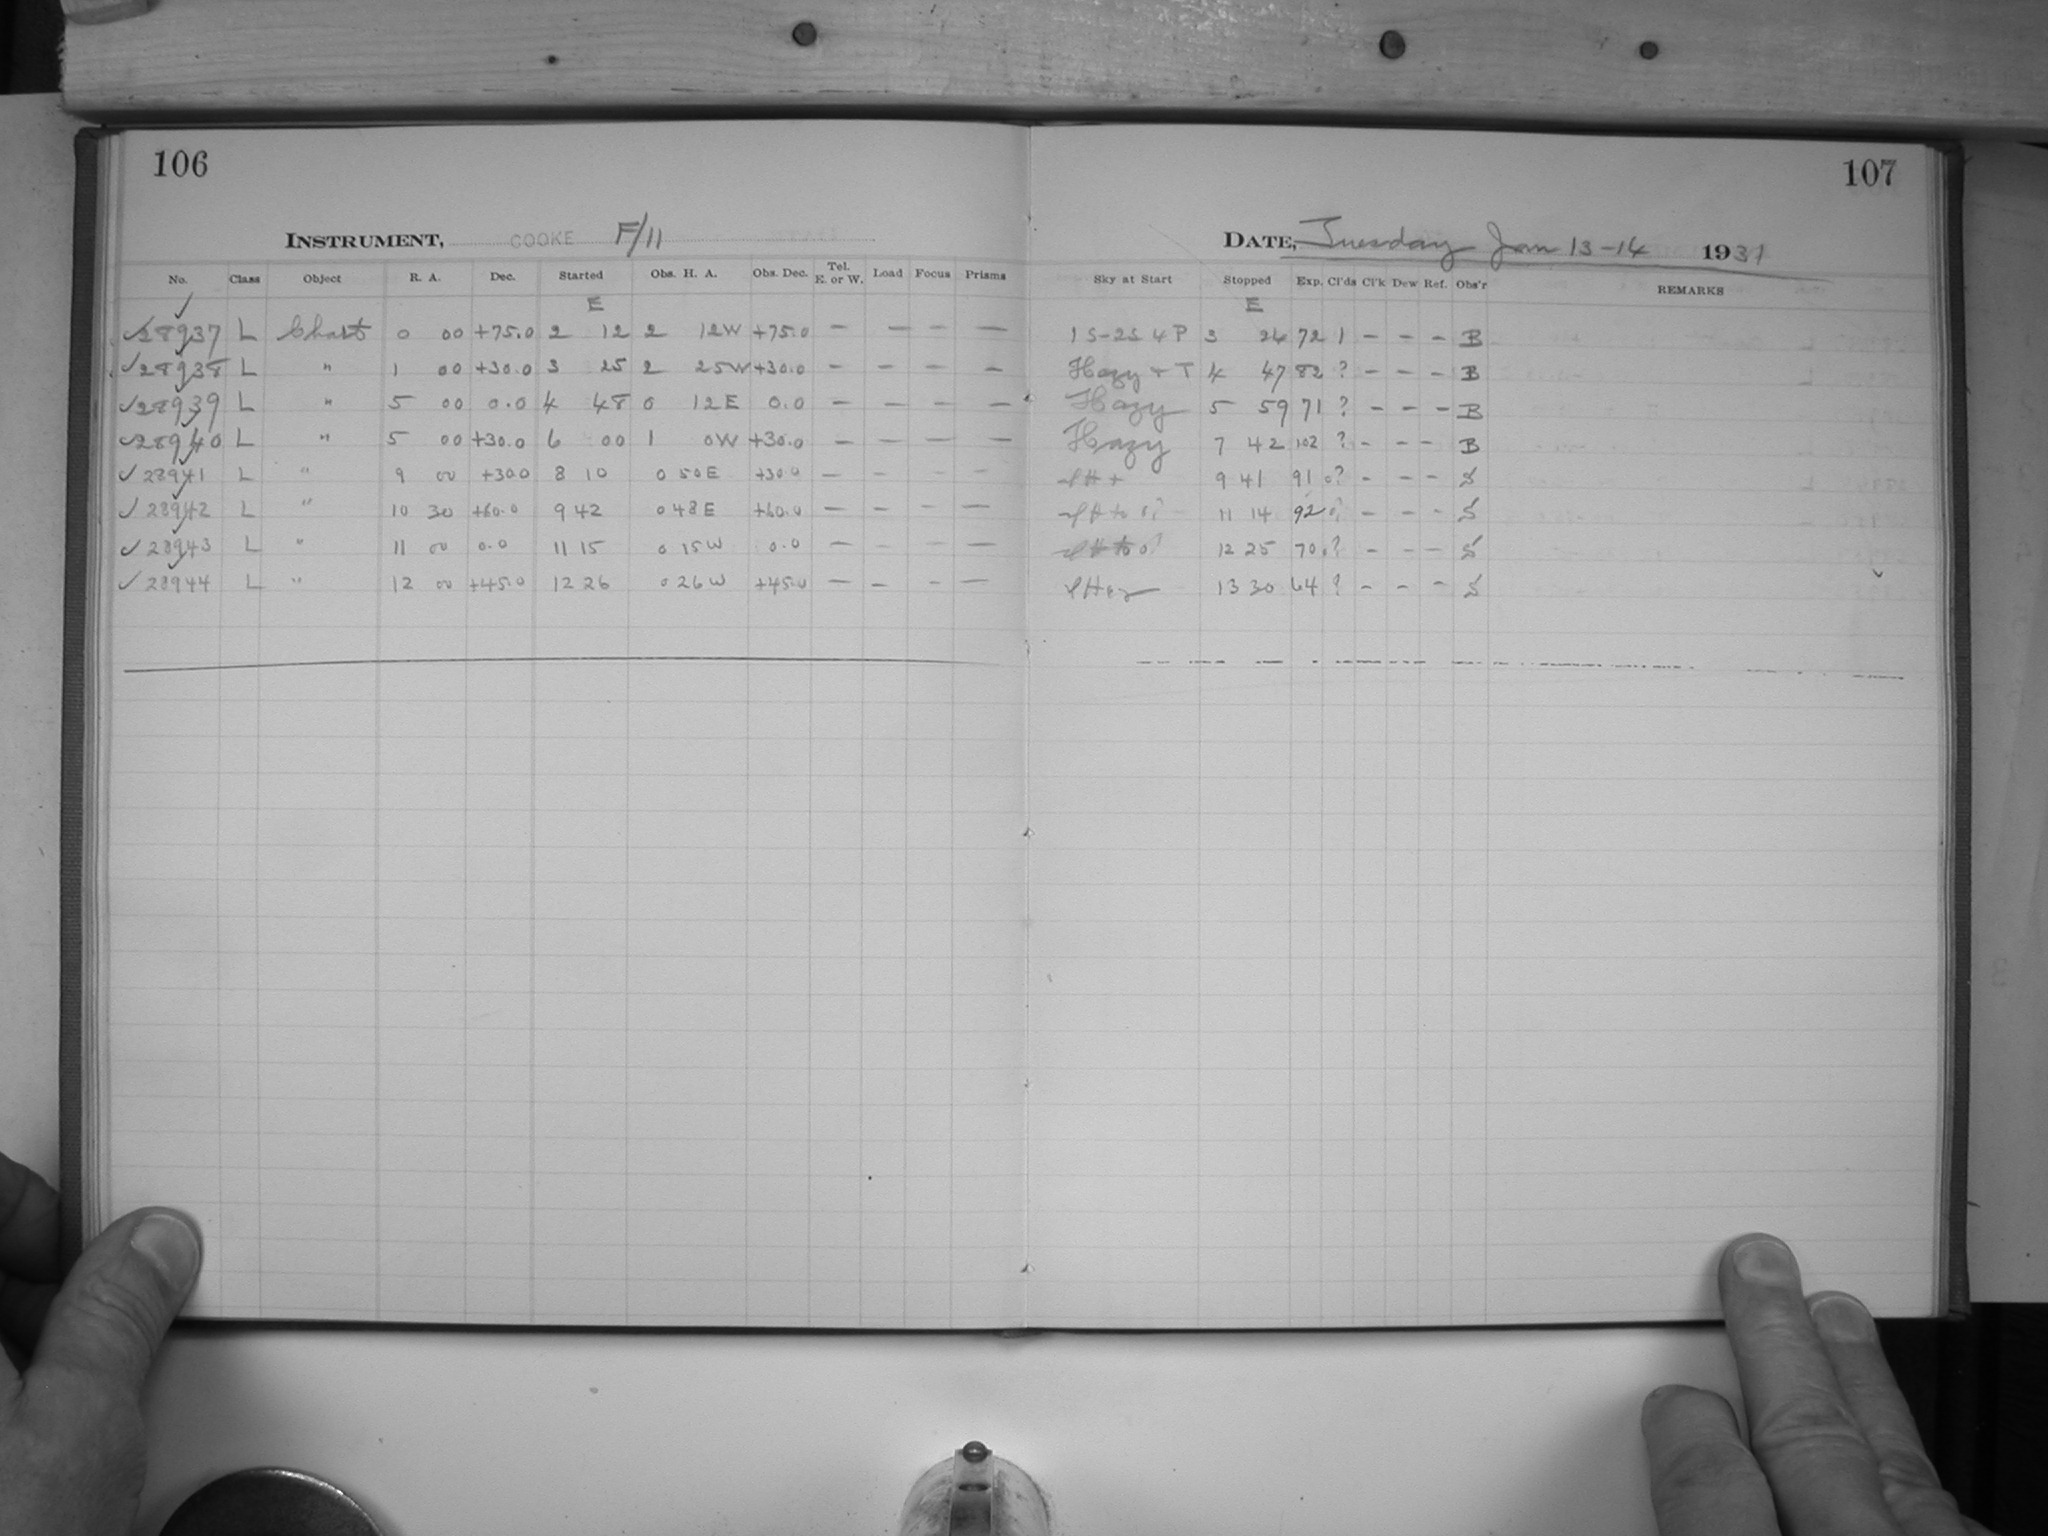 106
INSTRUMENT, COOKE F/11
No. Class Object R. A. Dec. Started Obs. H. A. Obs. Dec. Tel. E. or W. Load Focus Prisms
E
✓28937 L Chart 0 00 +75.0 2 12 2 12W +75.0 — — — —
✓28938 L " 1 00 +30.0 3 25 2 25W +30.0 — — — —
✓28939 L " 5 00 0.0 4 48 0 12E 0.0 — — — —
✓28940 L " 5 00 +30.0 6 00 1 0W +30.0 — — — —
✓28941 L " 9 00 +30.0 8 10 0 50E +30.0 — — — —
✓28942 L " 10 30 +60.0 9 42 0 48E +60.0 — — — —
✓28943 L " 11 00 0.0 11 15 0 15W 0.0 — — — —
✓28944 L " 12 00 +45.0 12 26 0 26W +45.0 — — — —
107
DATE, Tuesday Jan 13-14 1931
Sky at Start Stopped Exp. Cl'ds Cl'k Dew Ref. Obs'r REMARKS
E
1S-2S 4P 3 24 72 1 - - - B
Hazy + T 4 47 82 ? - - - B
Hazy 5 59 71 ? - - - B
Hazy 7 42 102 ? - - - B
9 41 91 ? - - - S
11 14 92 ? - - - S
12 25 70 ? - - - S
13 30 64 ? - - - S